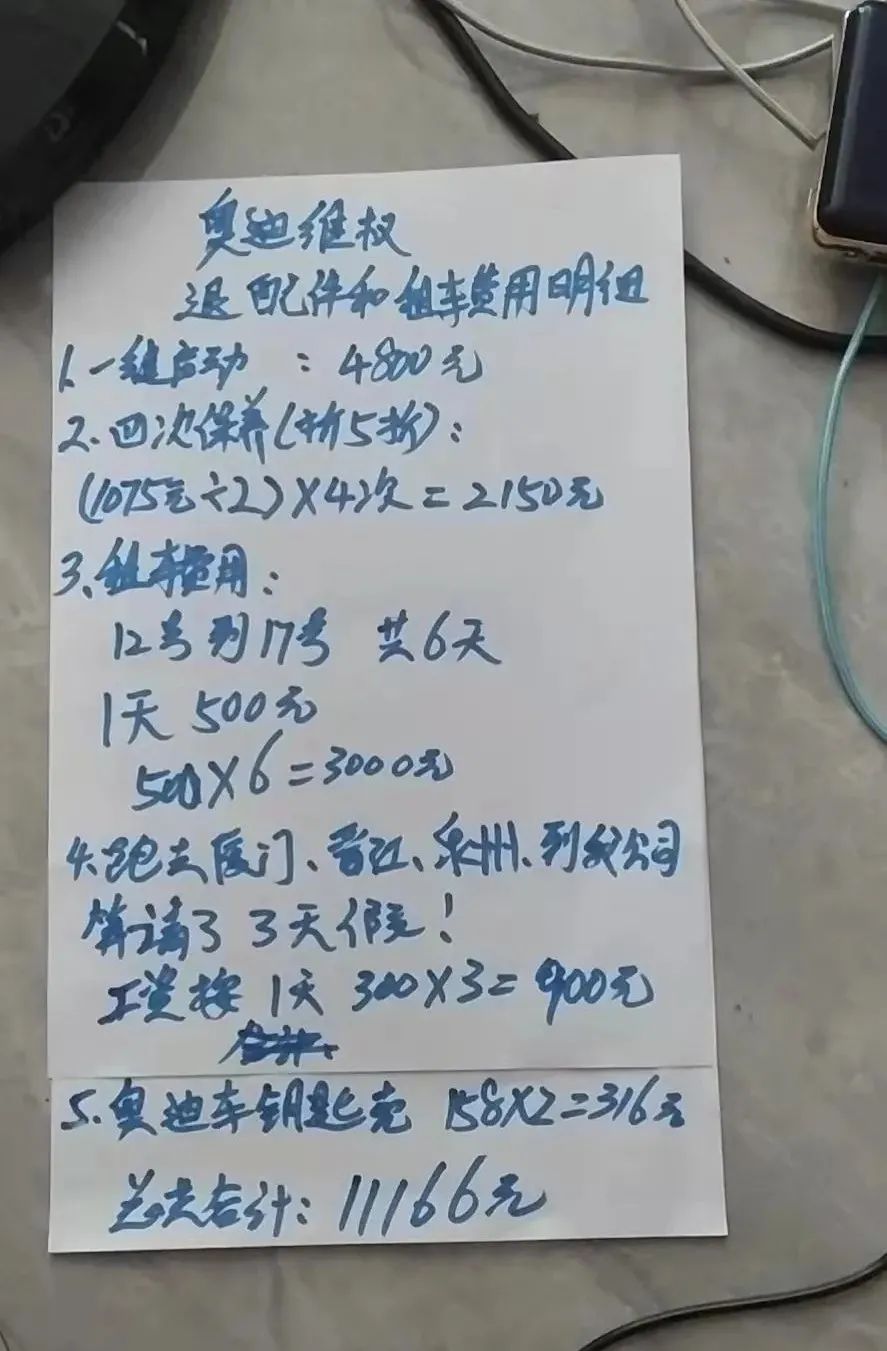 奥迪维权
退配件和租车费用明细
1.一键启动 : 4800元
2.四次保养(折5折):
(1075元÷2)×4次=2150元
3.租车费用:
12号到17号 共6天
1天 500元
500×6=3000元
4.跑去厦门、晋江、泉州、到我公司
算请了3天假!
工资按 1天 300×3=900元
5.奥迪车钥匙壳 158×2=316元
总共合计:11166元